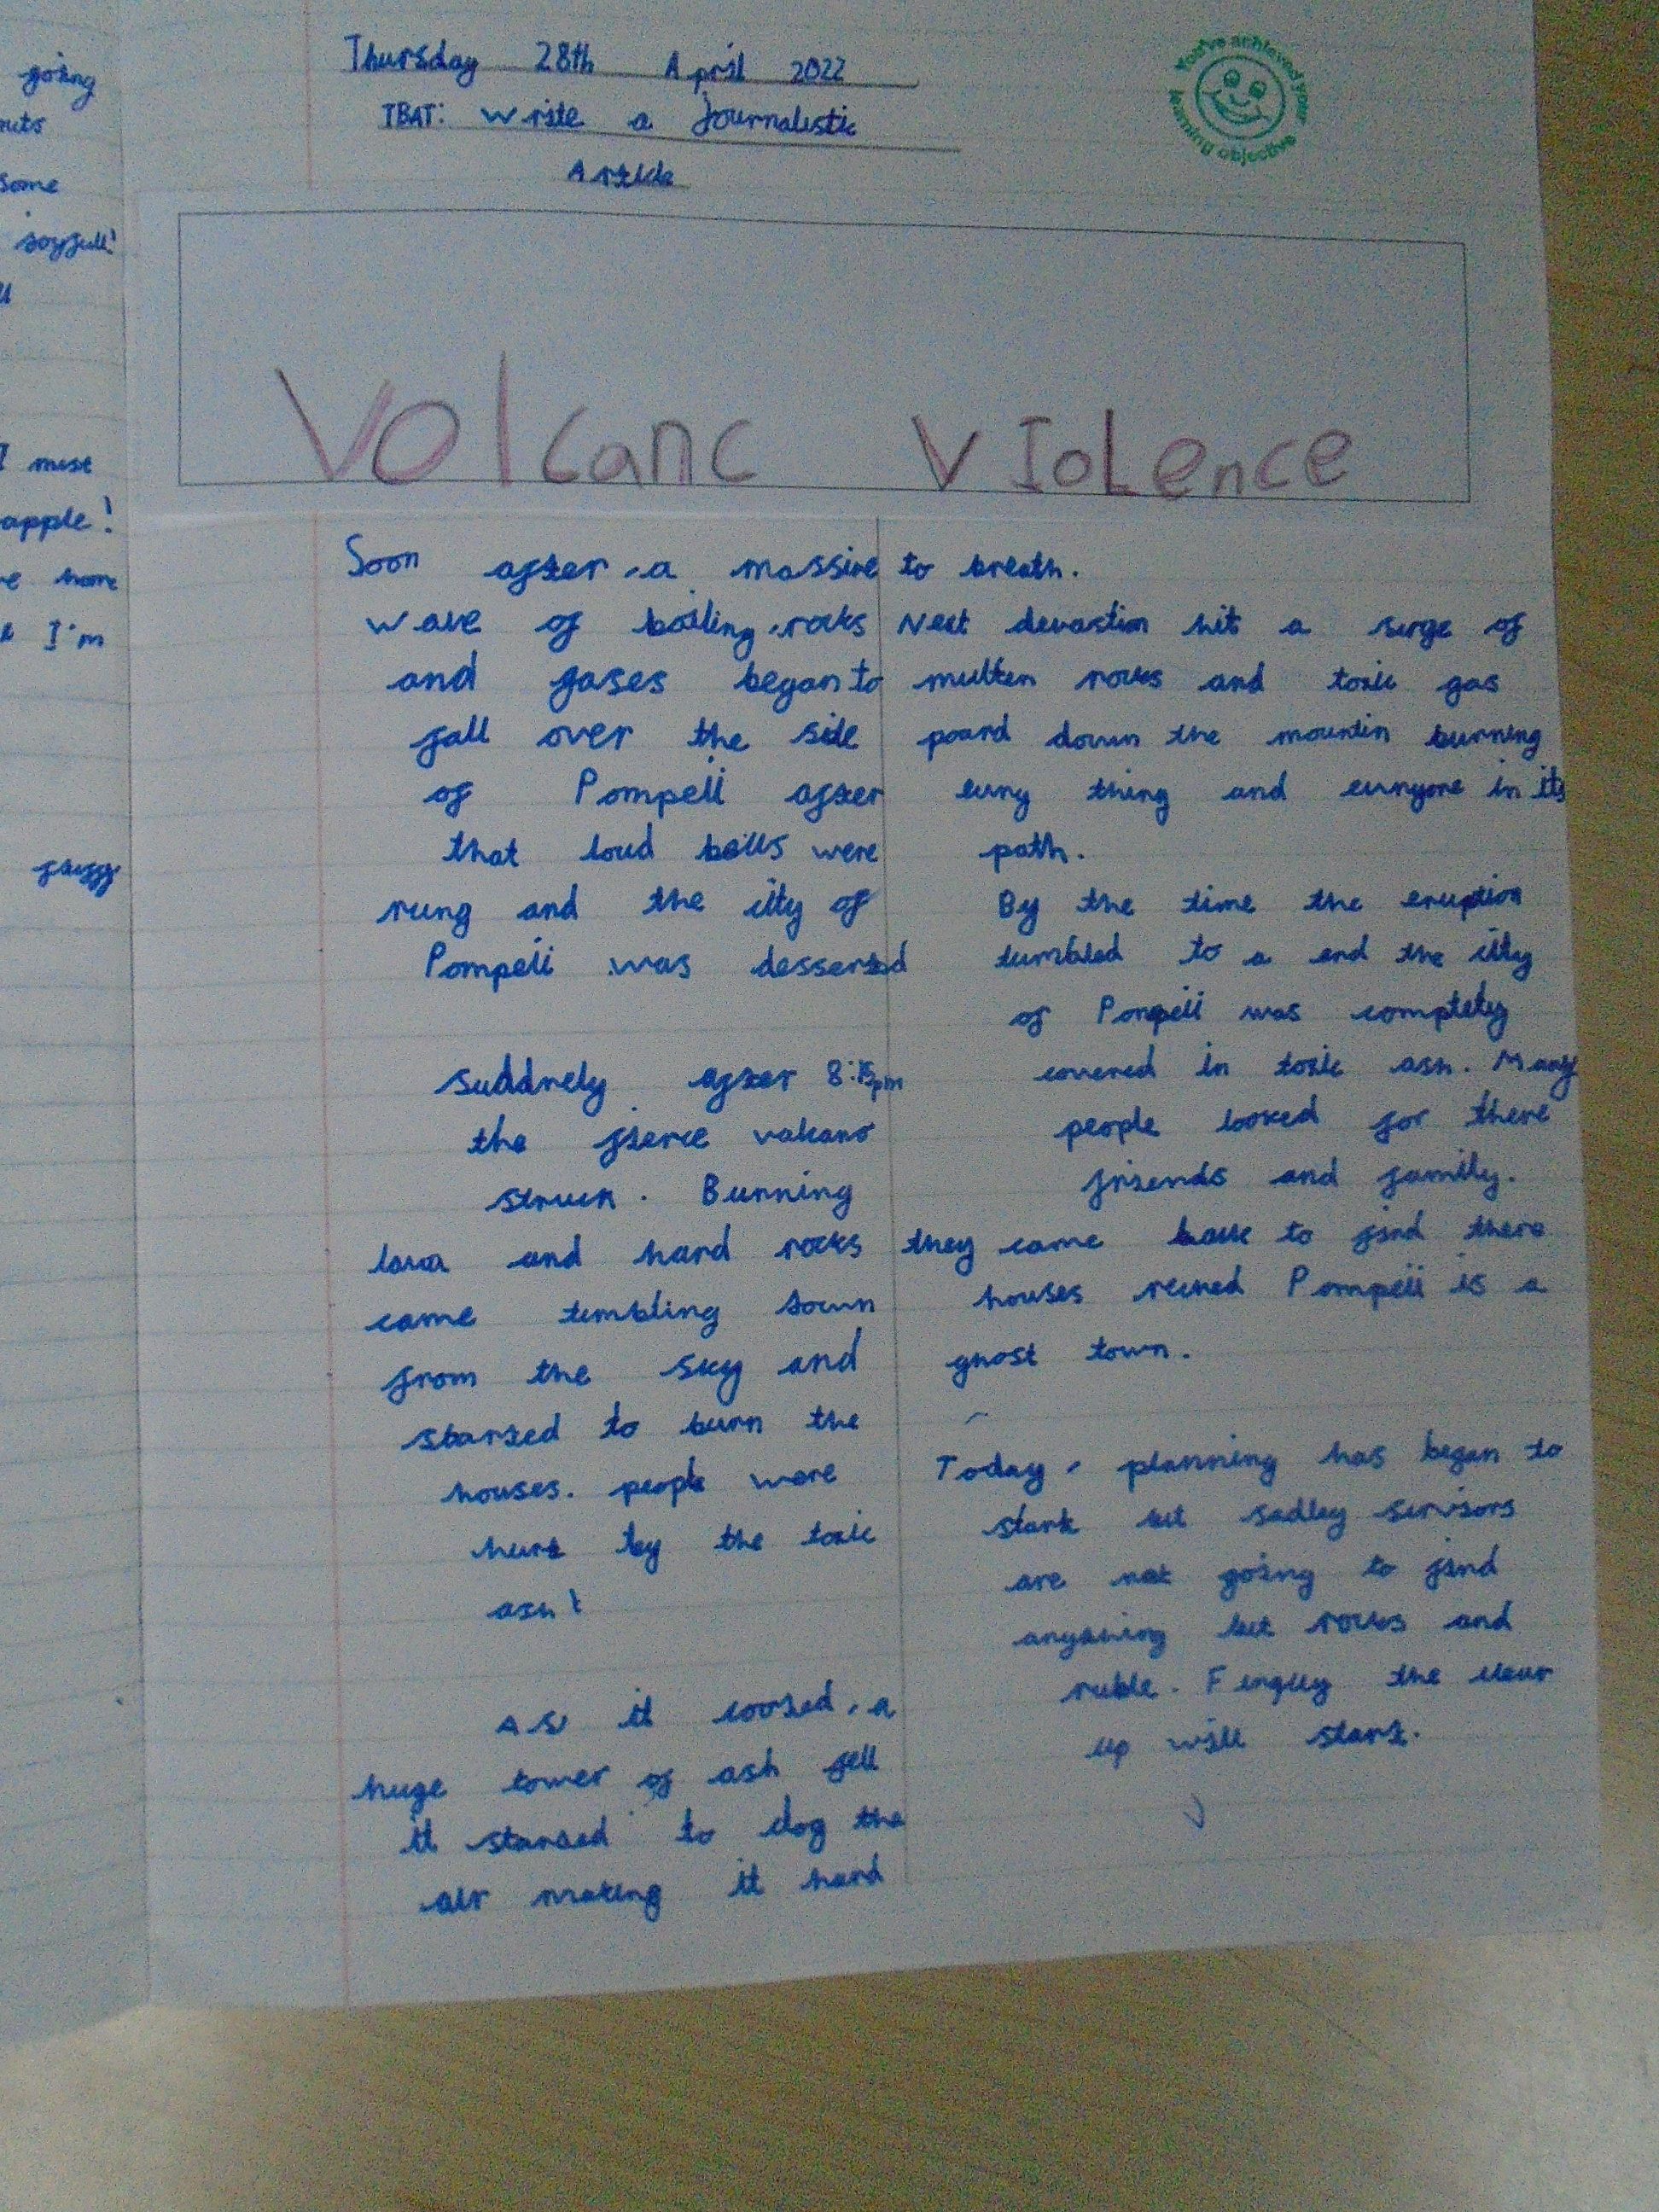 going
some
joyfull!
I must
apple!
home
I'm
Thursday 28th April 2022
TBAT: Write a Journalistic
Article
You've achieved your
learning objective
Volcanc Violence
Soon after, a massive
wave of boiling, rocks
and gases began to
fall over the side
of Pompeii after
that loud bells were
rung and the city of
Pompeii was desserted
suddnely after 8:15pm
the fierce valcano
struck. Burning
lava and hard rocks
came tumbling down
from the sky and
started to burn the
houses. people were
hurt by the toxic
ash!
As it cooled, a
huge tower of ash fell
it started to clog the
air making it hard
to breath.
Next devastion hit a surge of
multen rocks and toxic gas
poard down the mountin burning
evry thing and evryone in its
path.
By the time the eruption
tumbled to a end the city
of Pompeii was completly
covered in toxic ash. Many
people looked for there
friends and family.
they came back to find there
houses reuned Pompeii is a
ghost town.
Today, planning has began to
start but sadley survisors
are not going to find
anything but rocks and
ruble. Finally the clear
up will start.